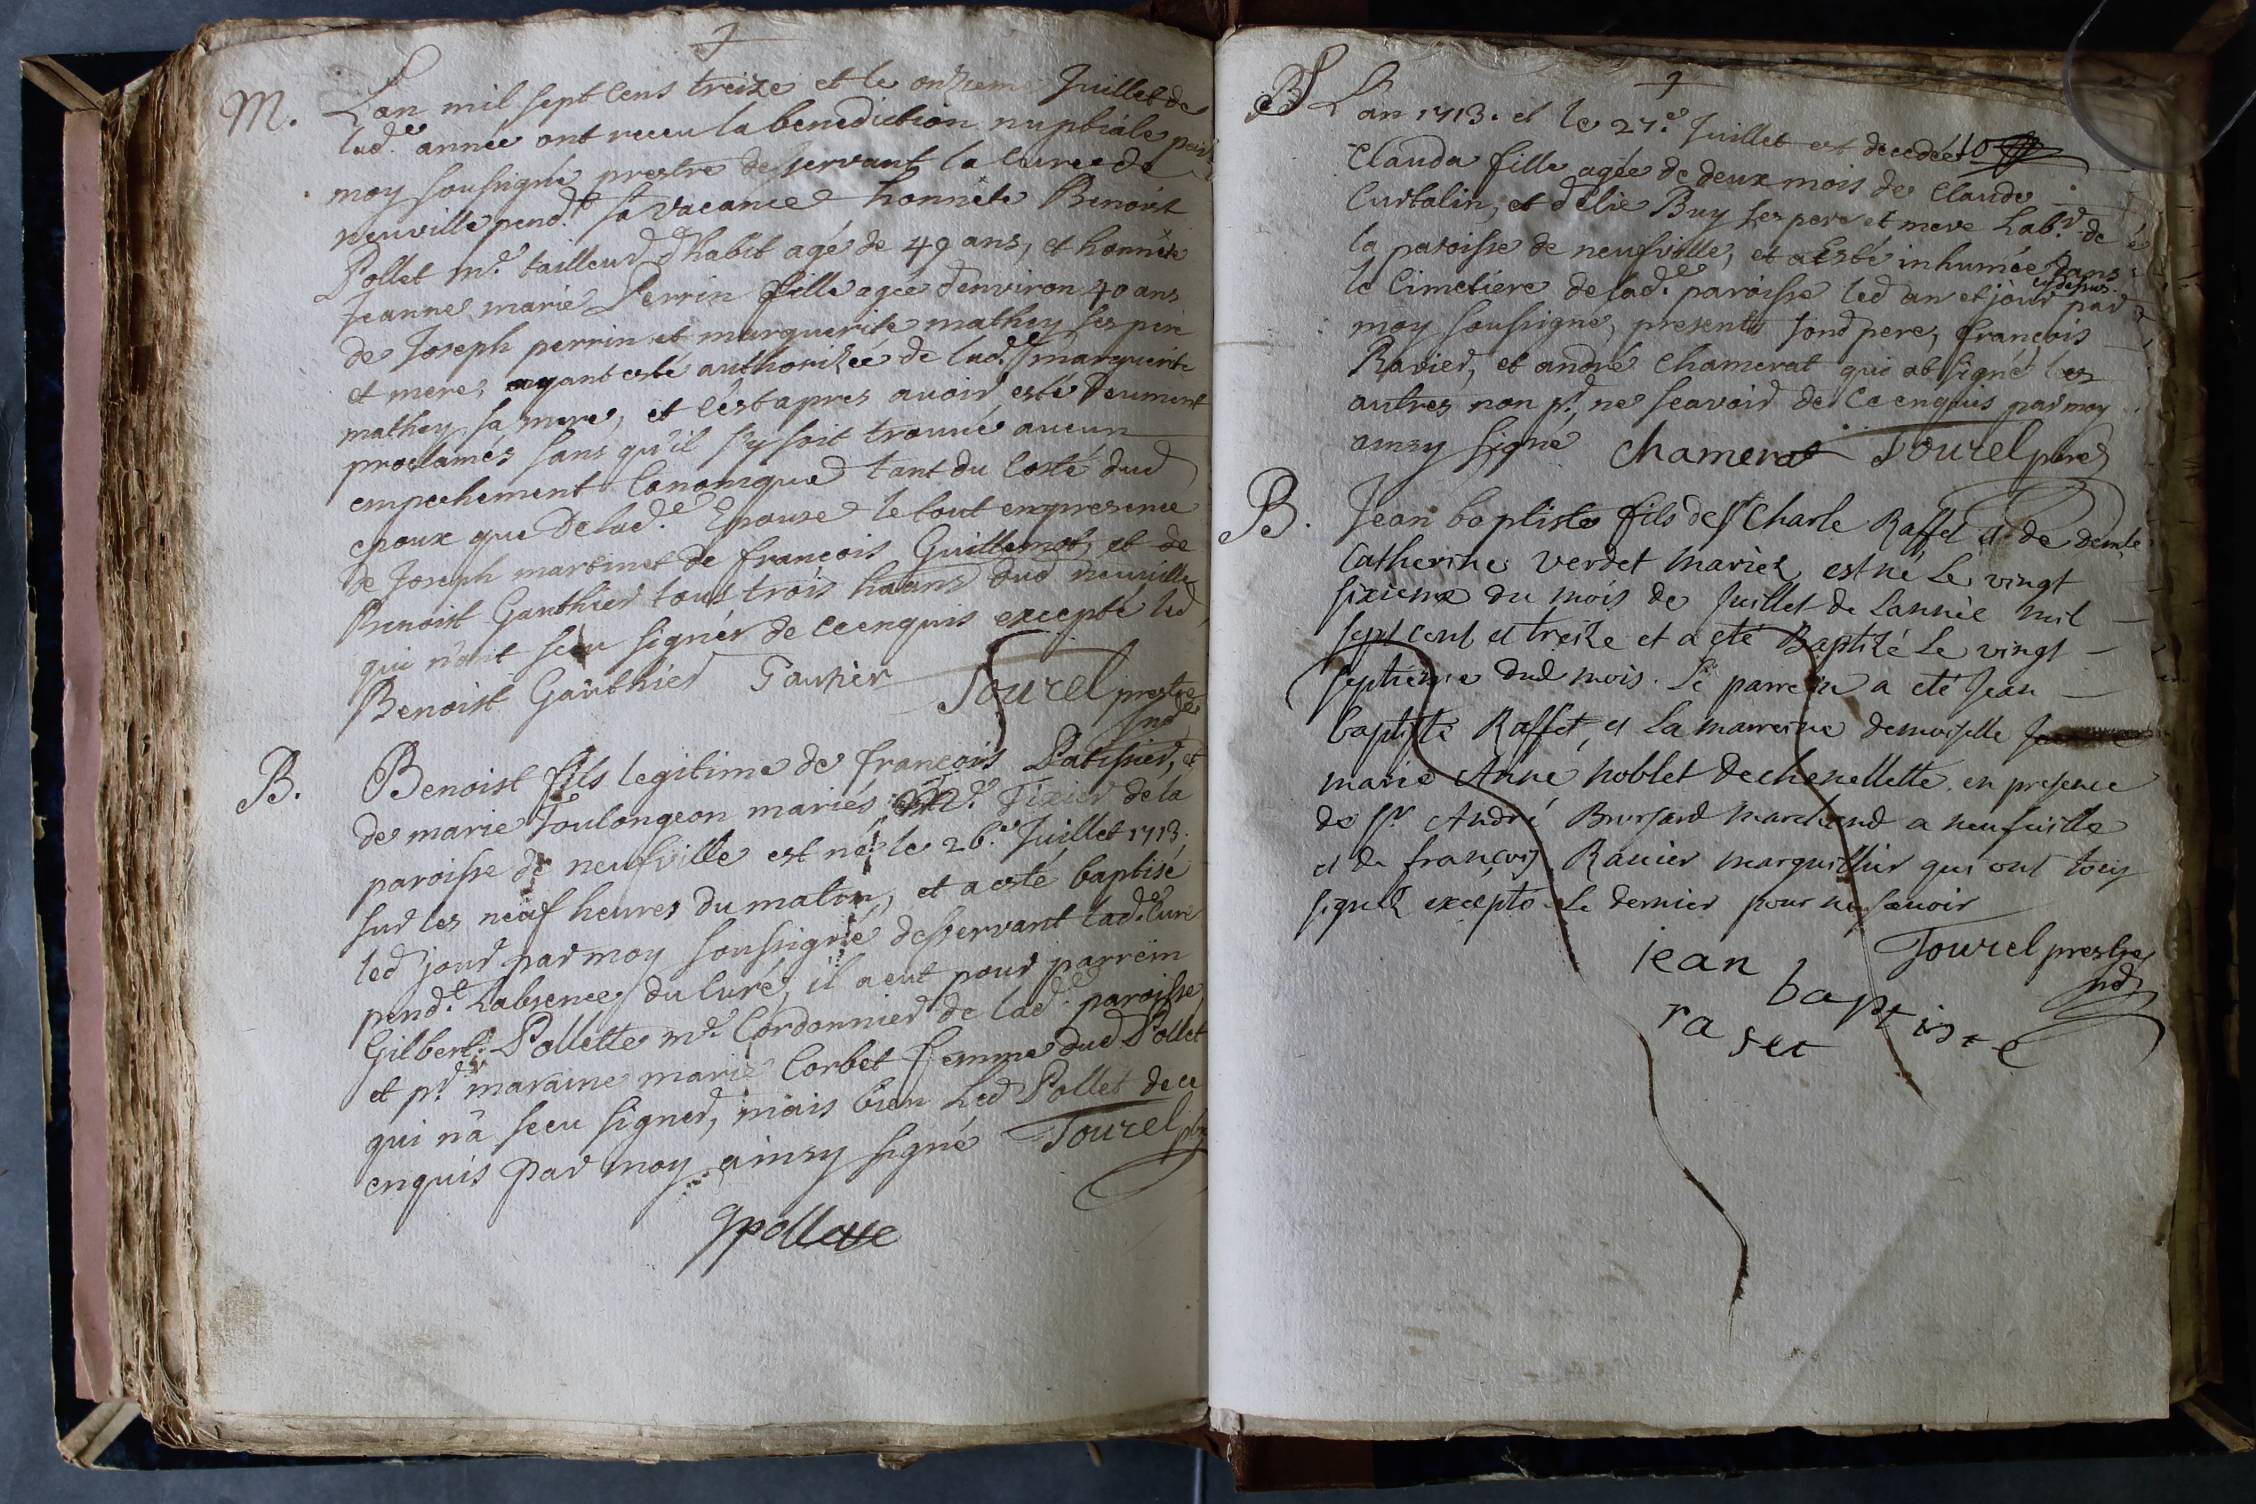 M. L'an mil sept cens treize et le onzieme Juillet de
lad.e année ont receu la benediction nuptiale par
moy soussigné prestre desservant la cure de
neuville pend.t sa vacance honnête Benoist
Pollet m.e tailleur d'habit agé de 49 ans, et honnête
Jeanne marie Perrin fille agée d'environ 40 ans
de Joseph perrin et marguerite mathey ses pere
et mere, ayant esté authorizée de lad.e marguerite
mathey sa mere, et c'est apres avoir esté deument
proclamés sans qu'il s'y soit trouvé aucun
empechement Canonique tant du Costé dud
epoux que De lad.e Epouse le tout en presence
de Joseph martinet de françois Guillemot, et de
Benoist Gauthier tous trois haans dud neuville
qui n'ont sceu signer de ce enquis excepté led
Benoist Gauthier Gautier Tourel prestre
B. Benoist fils legitime de françois Patissier, et
de marie Toulongeon mariés m.e Tixier de la
paroisse de neufville est né le 26.e Juillet 1713.
sur les neuf heures du matin, et a esté baptisé
led jour par moy soussigné desservant lad.e Cure
pend.t L'absence du Curé, il a eut pour parrein
Gilbert Pollette m.e Cordonnier de lad.e paroisse
et p.r maraine marie Corbet femme dud Pollet
qui n'a sceu signer, mais bien Led Pollet de ce
enquis par moy ainsy signé Tourel pbre
gpollette
L'an 1713. et le 27.e Juillet est decedée
Clauda fille agée de deux mois de Claude
Curtalin, et d'elie Buy ses pere et mere Lab.r de
la paroisse de neufville, et a esté inhumée dans
cy depus.
le Cimetiere de lad.e paroisse led an et jour par
moy soussigné, presents sond pere, françois
Ravier, et andré Chamerat qui at signé les
autres non p.r ne scavoir de Ce enquis par moy
ainsy signé Chamerat Tourel pbre
B. Jean baptiste fils de sr Charle Raffet et de demlle
Catherine Verdet mariez est né Le vingt
sixieme du mois de Juillet de L'année mil
sept cent et treize et a eté Baptizé Le vingt
septieme dud mois. Le parrein a eté Jean
baptiste Raffet et La marreine demoiselle
marie Anne noblet dechenellette en presence
de sr André Brossard marchand a neufville
et de françois Ravier marguillier qui ont tous
signez excepté Le dernier pour ne scavoir
Tourel prestre
jean baptiste
rafet